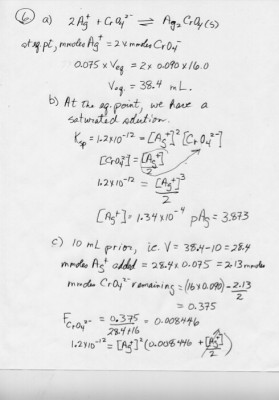 ⑥ a) 2Ag⁺ + CrO₄²⁻ ⇌ Ag₂CrO₄(s)
at eq. pt, mmoles Ag⁺ = 2 x mmoles CrO₄⁻
0.075 × Veq = 2 × 0.090 × 16.0
Veq = 38.4 mL.
b) At the eq. point, we have a
saturated solution.
Ksp = 1.2×10⁻¹² = [Ag⁺]² [CrO₄²⁻]
[CrO₄²⁻] = [Ag⁺]/2
1.2×10⁻¹² = [Ag⁺]³/2
[Ag⁺] = 1.34×10⁻⁴ pAg = 3.873
c) 10 mL prior, ie. V = 38.4-10 = 28.4
mmoles Ag⁺ added = 28.4 × 0.075 = 2.13 mmoles
mmoles CrO₄²⁻ remaining = (16×0.090) - 2.13/2
= 0.375
F CrO₄²⁻ = 0.375/28.4+16 = 0.008446
1.2×10⁻¹² = [Ag⁺]² (0.008446 + [Ag⁺]/2)